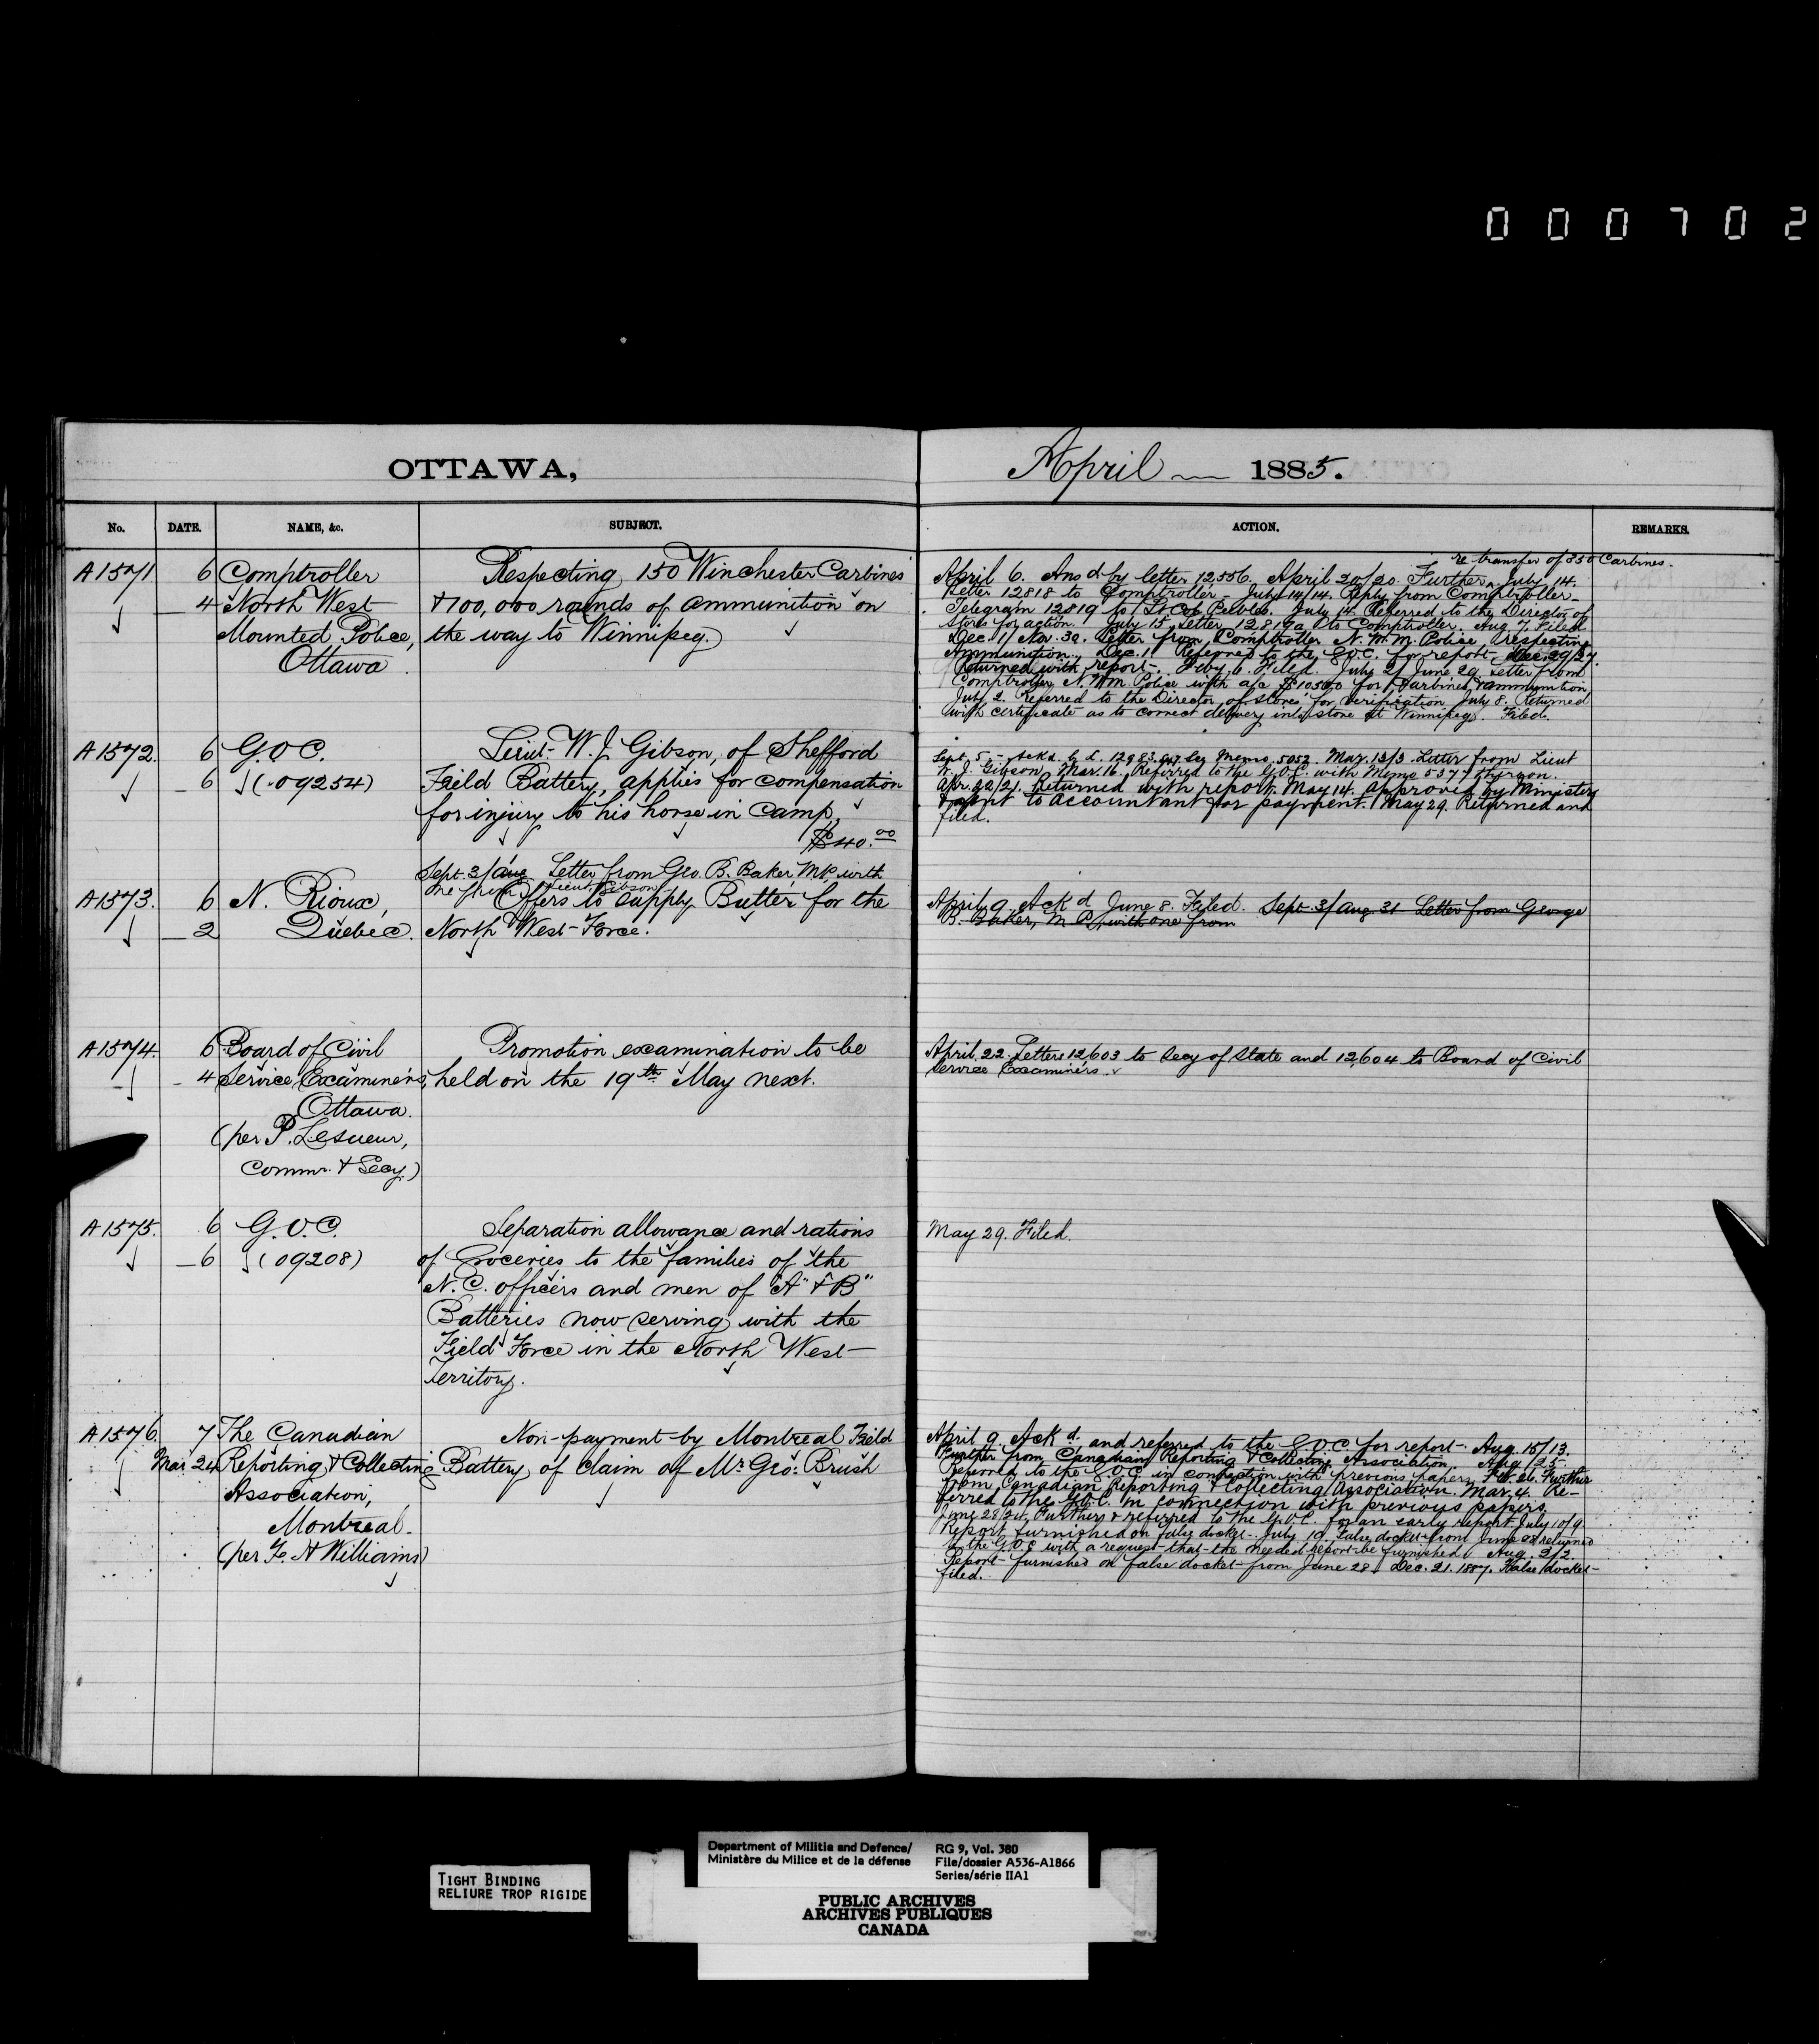 000702
OTTAWA,
April 1885.
No. DATE. NAME, &c. SUBJECT. ACTION. REMARKS.
A1571 6 Comptroller Respecting 150 Winchester Carbines
4 North West & 100,000 rounds of ammunition on
Mounted Police, the way to Winnipeg.
Ottawa
re transfer of 350 Carbines.
April 6. Ansd by letter 12556. April 20/20. Further. July 14.
Letter 12818 to Comptroller. July 14/14. Reply from Comptroller
Telegram 12819 to Lt Col Peebles. July 14. Referred to the Director of
Stores for action. July 15. Letter 12819a to Comptroller. Aug 7. Filed
Dec. 1/Nov. 30. Letter from Comptroller N. W. M. Police respecting
Ammunition. Dec. 1. Referred to the G.O.C. for report. Dec. 29/27.
Returned with report. Feby 6. Filed. July 2/June 29. Letter from
Comptroller N. W. M. Police with a/c for Carbines & ammunition
July 2. Referred to the Director of Stores for verification July 8. Returned
with certificate as to correct delivery into store at Winnipeg. Filed.
A1572. 6 G.O.C. Lieut. W. J. Gibson, of Shefford
6 (09254) Field Battery, applies for compensation
for injury to his horse in camp,
$40.00
Sept. 3/Aug Letter from Geo. B. Baker M.P. with
one from Lieut. Gibson
Sept. 5. Ackd. by L. 12983. Memo. 5052. Mar. 13/3. Letter from Lieut
W. J. Gibson. Mar. 16. Referred to the G.O.C. with Memo 5377 thereon.
Apr. 22/21. Returned with report. May 14. Approved by Minister
& sent to Accountant for payment. May 29. Returned and
filed.
A1573. 6 N. Rioux, Offers to supply Butter for the
2 Quebec. North West Force.
April 9. Ackd June 8. Filed. Sept 3/Aug 31 Letter from George
B. Baker, M P, with one from
A1574. 6 Board of Civil Promotion examination to be
4 Service Examiners, held on the 19th May next.
Ottawa.
(per P. Lesueur,
Commr. & Secy.)
April 22. Letters 12603 to Secy of State and 12604 to Board of Civil
Service Examiners.
A1575. 6 G.O.C. Separation allowance and rations
6 (09208) of Groceries to the families of the
N.C. officers and men of "A" & "B"
Batteries now serving with the
Field Force in the North West
Territory.
May 29. Filed.
A1576. 7 The Canadian Non-payment by Montreal Field
Mar. 24 Reporting & Collecting Battery of claim of Mr Geo: Brush
Association,
Montreal.
(per F. H Williams)
April 9. Ackd. and referred to the G.O.C. for report. Aug. 15/13.
Further from Canadian Reporting & Collecting Association. Aug. 25.
Referred to the G.O.C. in connection with previous papers. Feb. 26. Further
from Canadian Reporting & Collecting Association. Mar. 4. Re-
ferred to the G.O.C. in connection with previous papers.
June 28/24. Further & referred to the G.O.C. for an early report July 10/9
Report furnished on false docket. July 10. False docket from June 28 returned
to the G.O.C with a request that the needed report be furnished Aug. 2/2.
Report furnished on false docket from June 28. Dec. 21. 1887. False docket
filed.
TIGHT BINDING
RELIURE TROP RIGIDE
Department of Militia and Defence/ RG 9, Vol. 380
Ministère du Milice et de la défense File/dossier A536-A1866
Series/série IIA1
PUBLIC ARCHIVES
ARCHIVES PUBLIQUES
CANADA